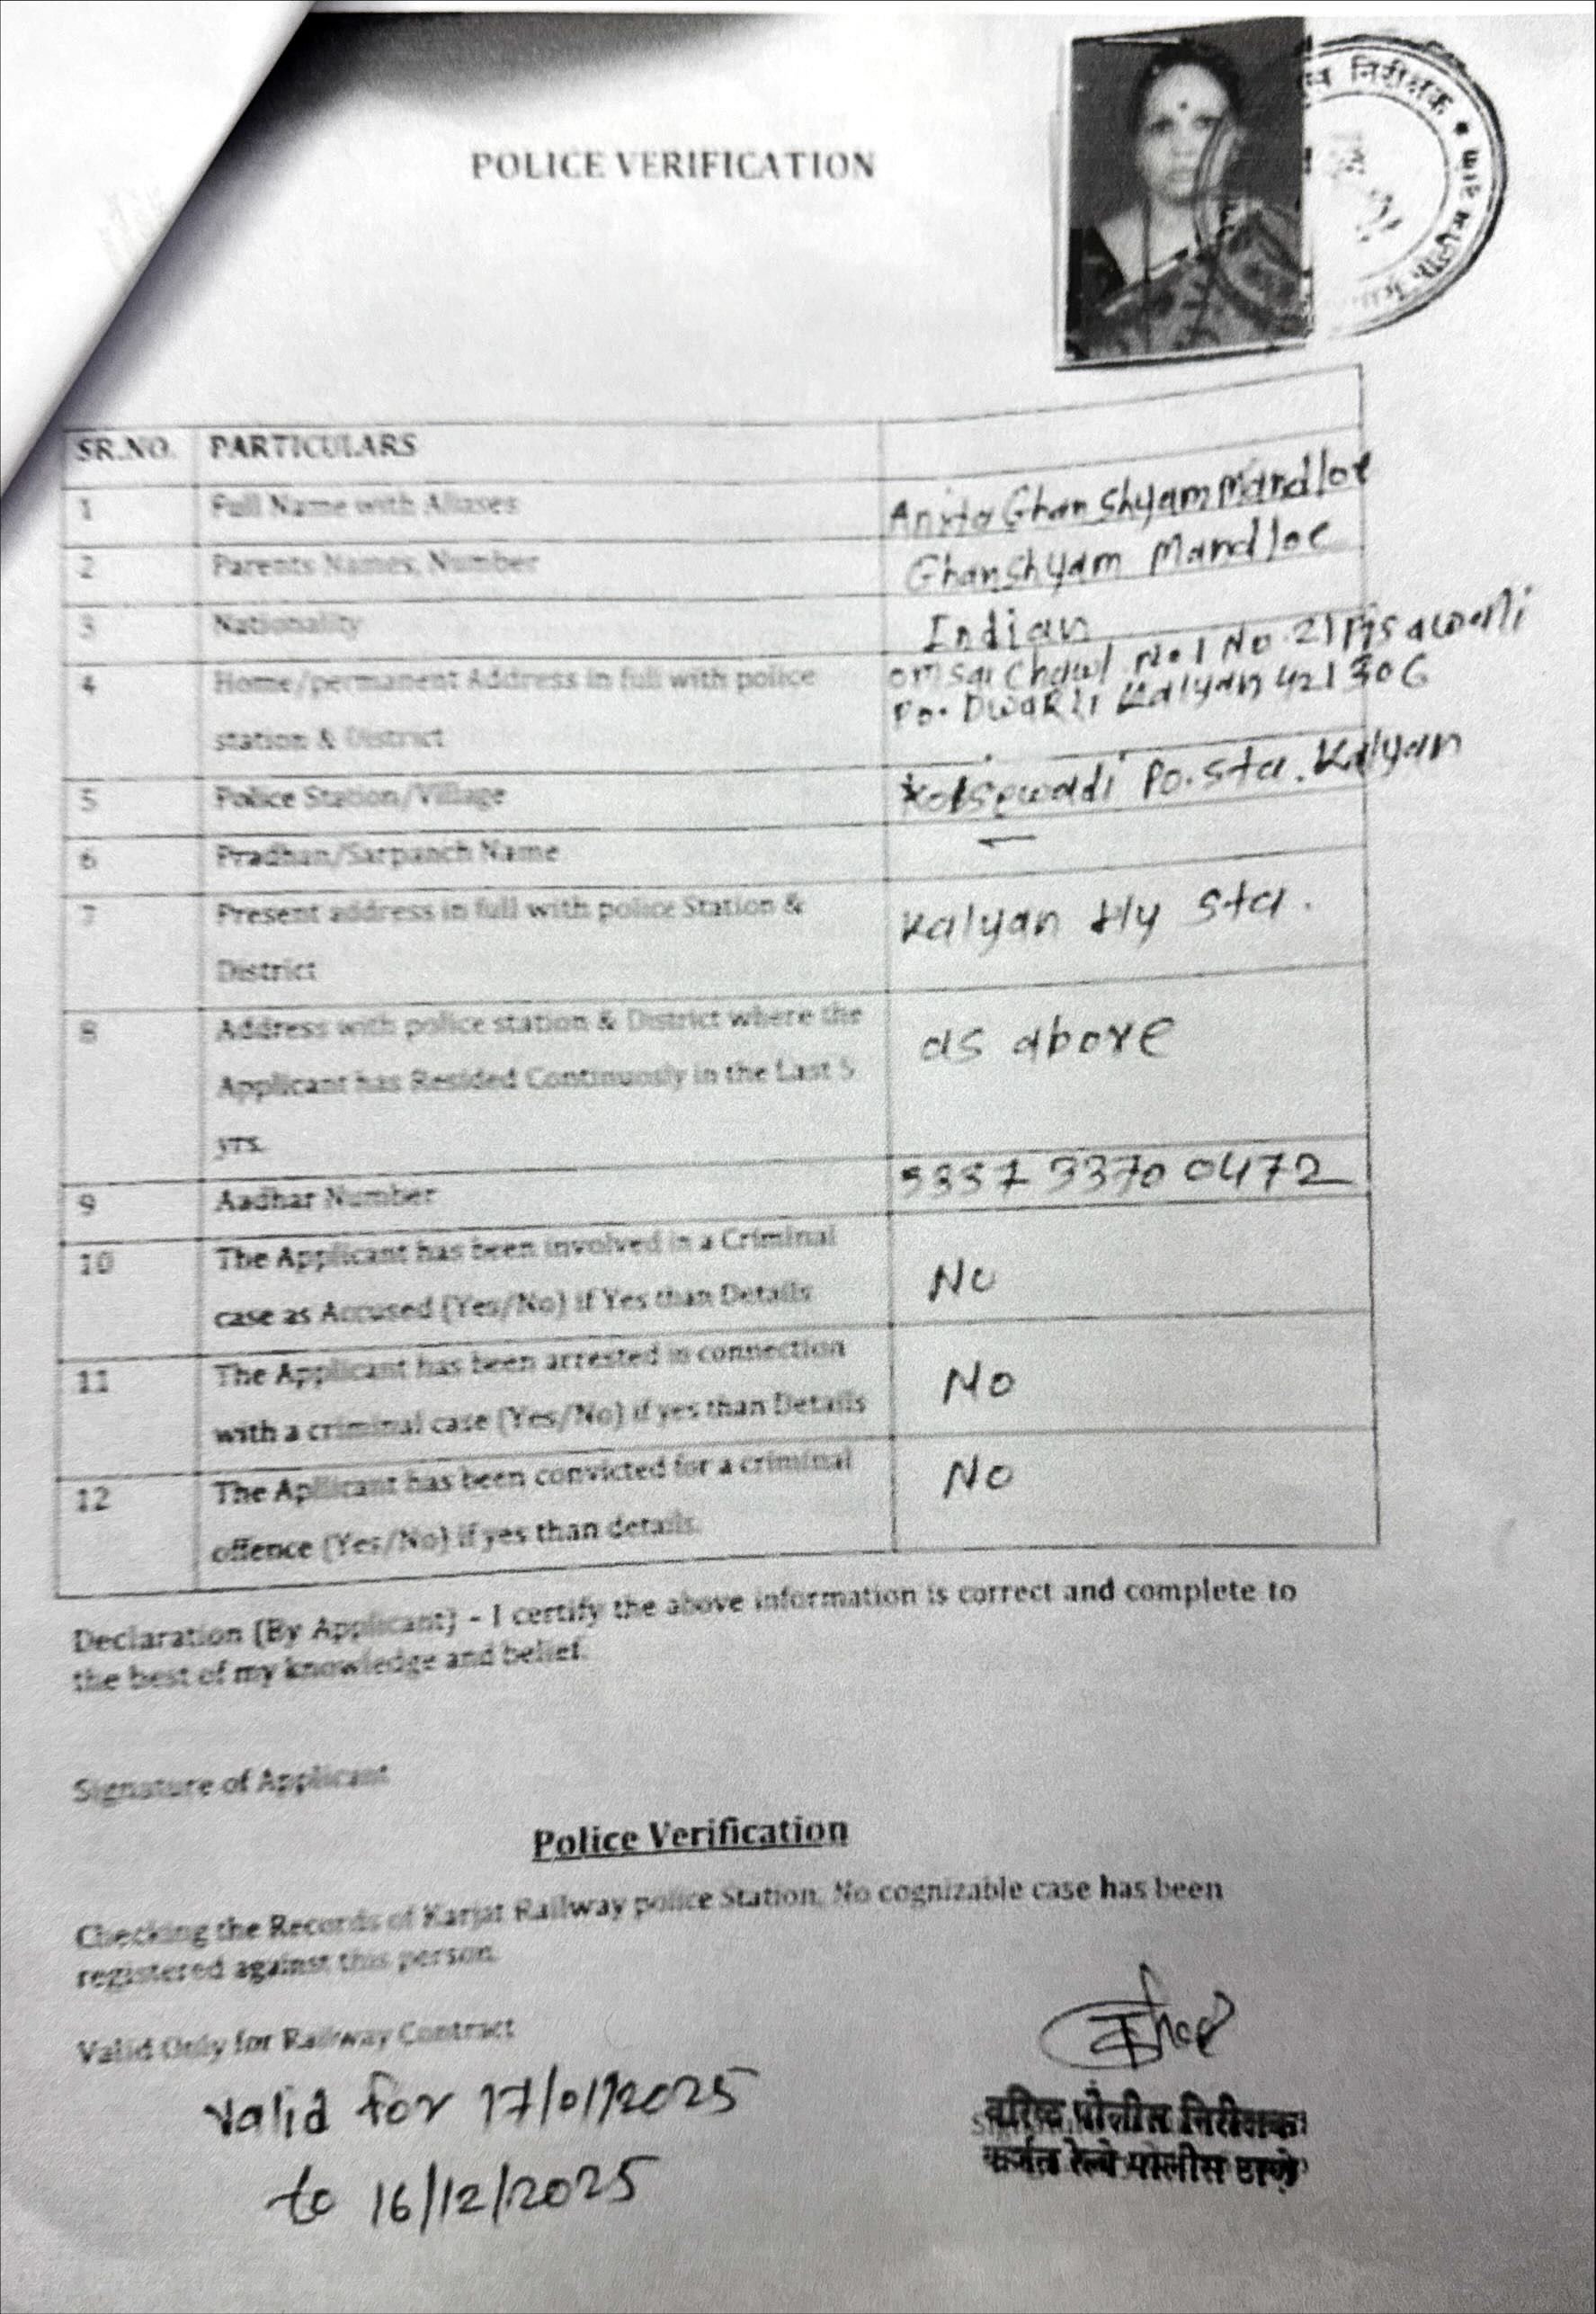 निरीक्षक
POLICE VERIFICATION
SR.NO. PARTICULARS
1 Full Name with Aliases Anita Ghanshyam Mandloe
2 Parents Names, Number Ghanshyam Mandloe
3 Nationality Indian
4 Home/permanent Address in full with police omsai Chawl No.1 No.21
station & District Po. Dwarli Kalyan 421306
5 Police Station/Village Kolsewadi Po.sta. Kalyan
6 Pradhan/Sarpanch Name —
7 Present address in full with police Station & Kalyan Rly sta.
District
8 Address with police station & District where the as above
Applicant has Resided Continuosly in the Last 5
yrs.
9 Aadhar Number 3370 0472
10 The Applicant has been involved in a Criminal No
case as Accused (Yes/No) if Yes than Details
11 The Applicant has been arrested in connection No
with a criminal case (Yes/No) if yes than Details
12 The Apllicant has been convicted for a criminal No
offence (Yes/No) if yes than details.
Declaration (By Applicant) - I certify the above information is correct and complete to
the best of my knowledge and belief.
Signature of Applicant
Police Verification
Checking the Records of Karjat Railway police Station, No cognizable case has been
registered against this person.
Valid Only for Railway Contract
valid for 17/01/2025
to 16/12/2025
वरिष्ठ पोलीस निरीक्षक
कर्जत रेल्वे पोलीस ठाणे